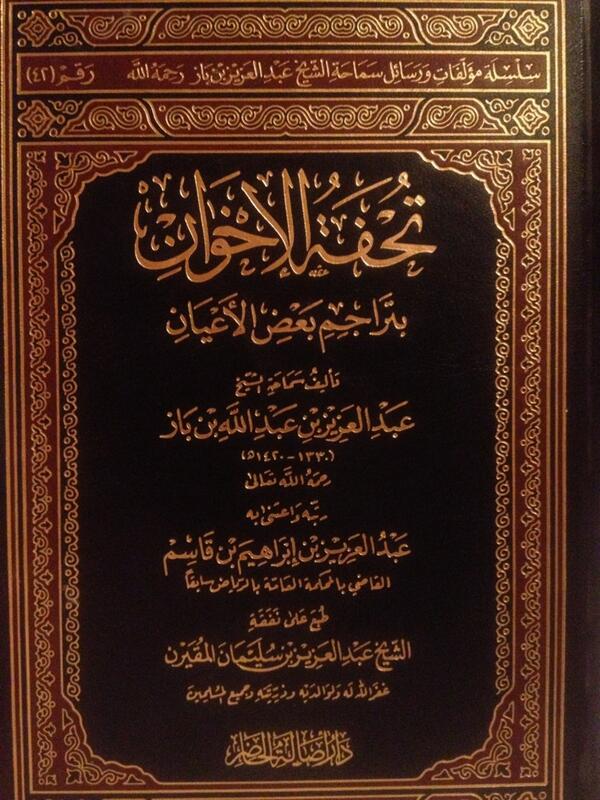 سلسلة مؤلفات ورسائل سماحة الشيخ عبد العزيز بن باز رحمه الله رقم (٤٢)
تُحْفَةُ الإِخْوَانِ
بِتَرَاجِمِ بَعْضِ الأَعْيَانِ
تأليف سماحة الشيخ
عَبْدِ العَزِيزِ بْنِ عَبْدِ اللهِ بْنِ بَاز
(١٣٣٠ - ١٤٢٠هـ)
رحمه الله تعالى
رتبه واعتنى به
عَبْدُ العَزِيزِ بْنِ إِبْرَاهِيمَ بْنِ قَاسِم
القاضي بالمحكمة العامة بالرياض سابقاً
طبع على نفقة
الشيخ عبد العزيز بن سليمان المقيرن
غفر الله له ولوالديه وذريته وجميع المسلمين
دار أصالة الحاضر